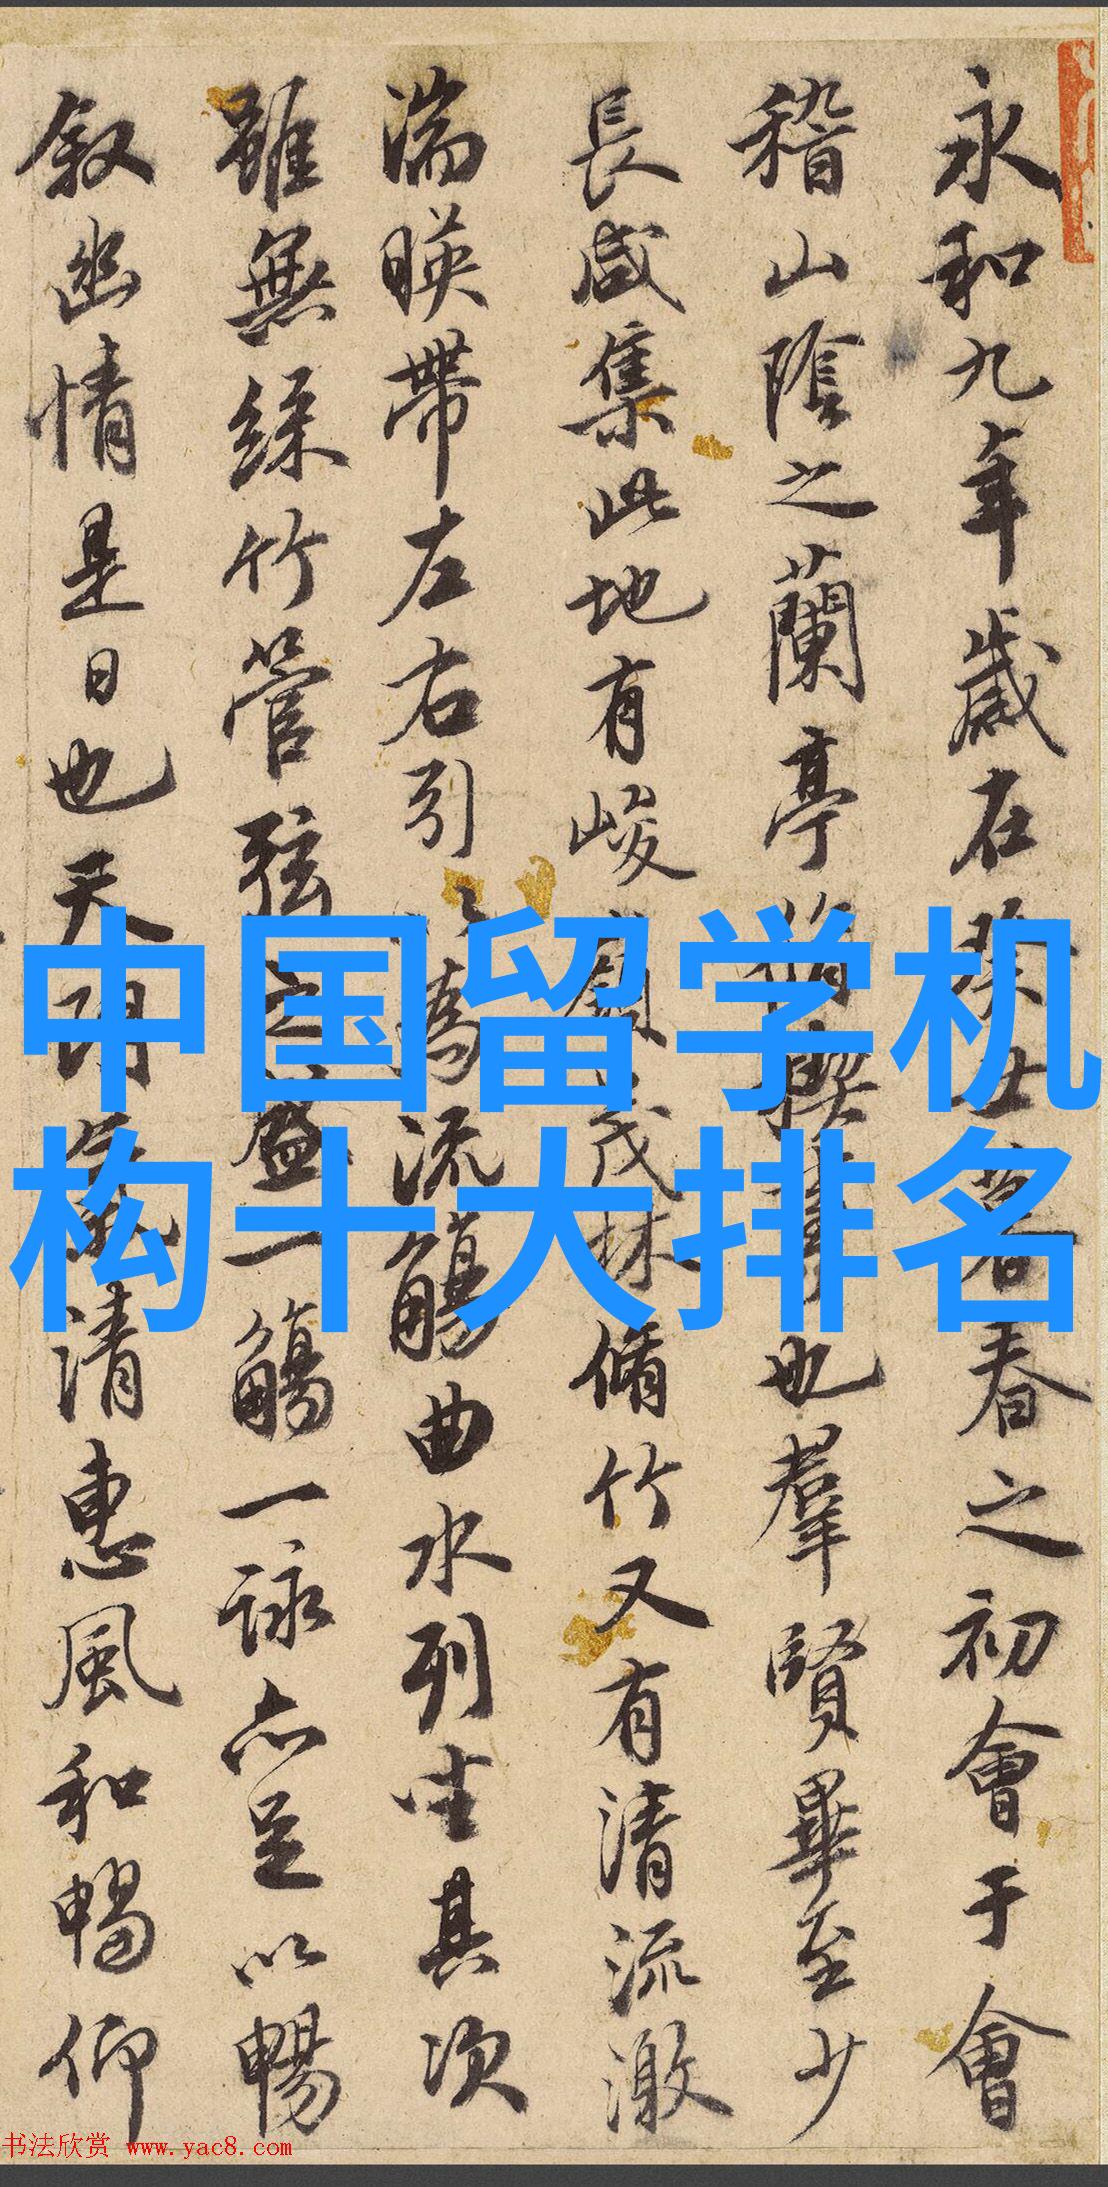 永和九年歲在癸丑暮春之初會于會
稽山陰之蘭亭脩禊事也羣賢畢至少
長咸集此地有峻領茂林脩竹又有清流激
湍暎帶左右引以為流觴曲水列坐其次
雖無絲竹管弦之盛一觴一詠亦足以暢
叙幽情是日也天朗氣清惠風和暢仰
中国留学机
构十大排名
书法欣赏 www.yac8.com